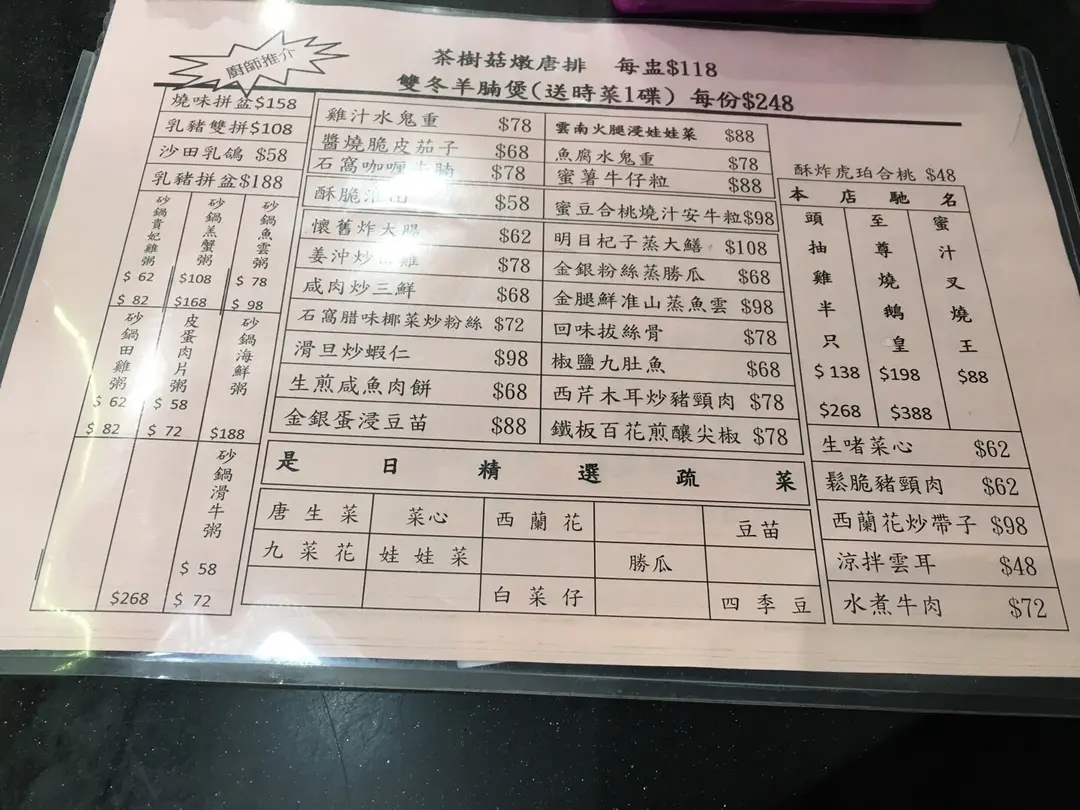 廚師推介
茶樹菇燉唐排 每盅$118
雙冬羊腩煲(送時菜1碟) 每份$248
燒味拼盆$158
乳豬雙拼$108
沙田乳鴿 $58
乳豬拼盆$188
砂鍋貴妃雞粥 $62 $82
砂鍋羔蟹粥 $108 $168
砂鍋魚雲粥 $78 $98
砂鍋田雞粥 $62 $82
皮蛋肉片粥 $58 $72
砂鍋海鮮粥 $188
$268
砂鍋滑牛粥 $58 $72
雞汁水鬼重 $78
醬燒脆皮茄子 $68
石窩咖喱牛腩 $78
酥脆 $58
懷舊炸大腸 $62
姜沖炒 雞 $78
咸肉炒三鮮 $68
石窩腊味椰菜炒粉絲 $72
滑旦炒蝦仁 $98
生煎咸魚肉餅 $68
金銀蛋浸豆苗 $88
雲南火腿浸娃娃菜 $88
魚腐水鬼重 $78
蜜薯牛仔粒 $88
蜜豆合桃燒汁安牛粒$98
明目杞子蒸大鱔 $108
金銀粉絲蒸勝瓜 $68
金腿鮮准山蒸魚雲 $98
回味拔絲骨 $78
椒鹽九肚魚 $68
西芹木耳炒豬頸肉 $78
鐵板百花煎釀尖椒 $78
酥炸虎珀合桃 $48
本店馳名
頭抽雞半只 $138 $268
至尊燒鵝皇 $198 $388
蜜汁叉燒王 $88
生啫菜心 $62
鬆脆豬頸肉 $62
西蘭花炒帶子 $98
涼拌雲耳 $48
水煮牛肉 $72
是日精選疏菜
唐生菜 菜心 西蘭花 豆苗
九菜花 娃娃菜 勝瓜
白菜仔 四季豆